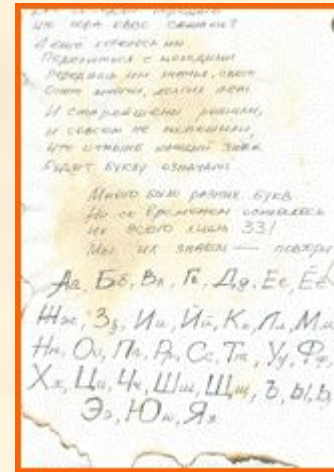 Что пора свое сказать?
И еще хотелось им
Поделиться с молодыми
Передать им знанья, свет
Опыт многих, долгих лет
И старейшины решили,
И совсем не
Что отныне каждый знак
Будет букву означать
Много было разных букв
Но со временем осталось
Их всего лишь 33!
Мы их знаем — повтори
Аа, Бб, Вв, Гг, Дд, Ее, Ёё
Жж, Зз, Ии, Йй, Кк, Лл, Мм
Нн, Оо, Пп, Рр, Сс, Тт, Уу, Фф,
Хх, Цц, Чч, Шш, Щщ, Ъ, Ы, Ь
Ээ, Юю, Яя